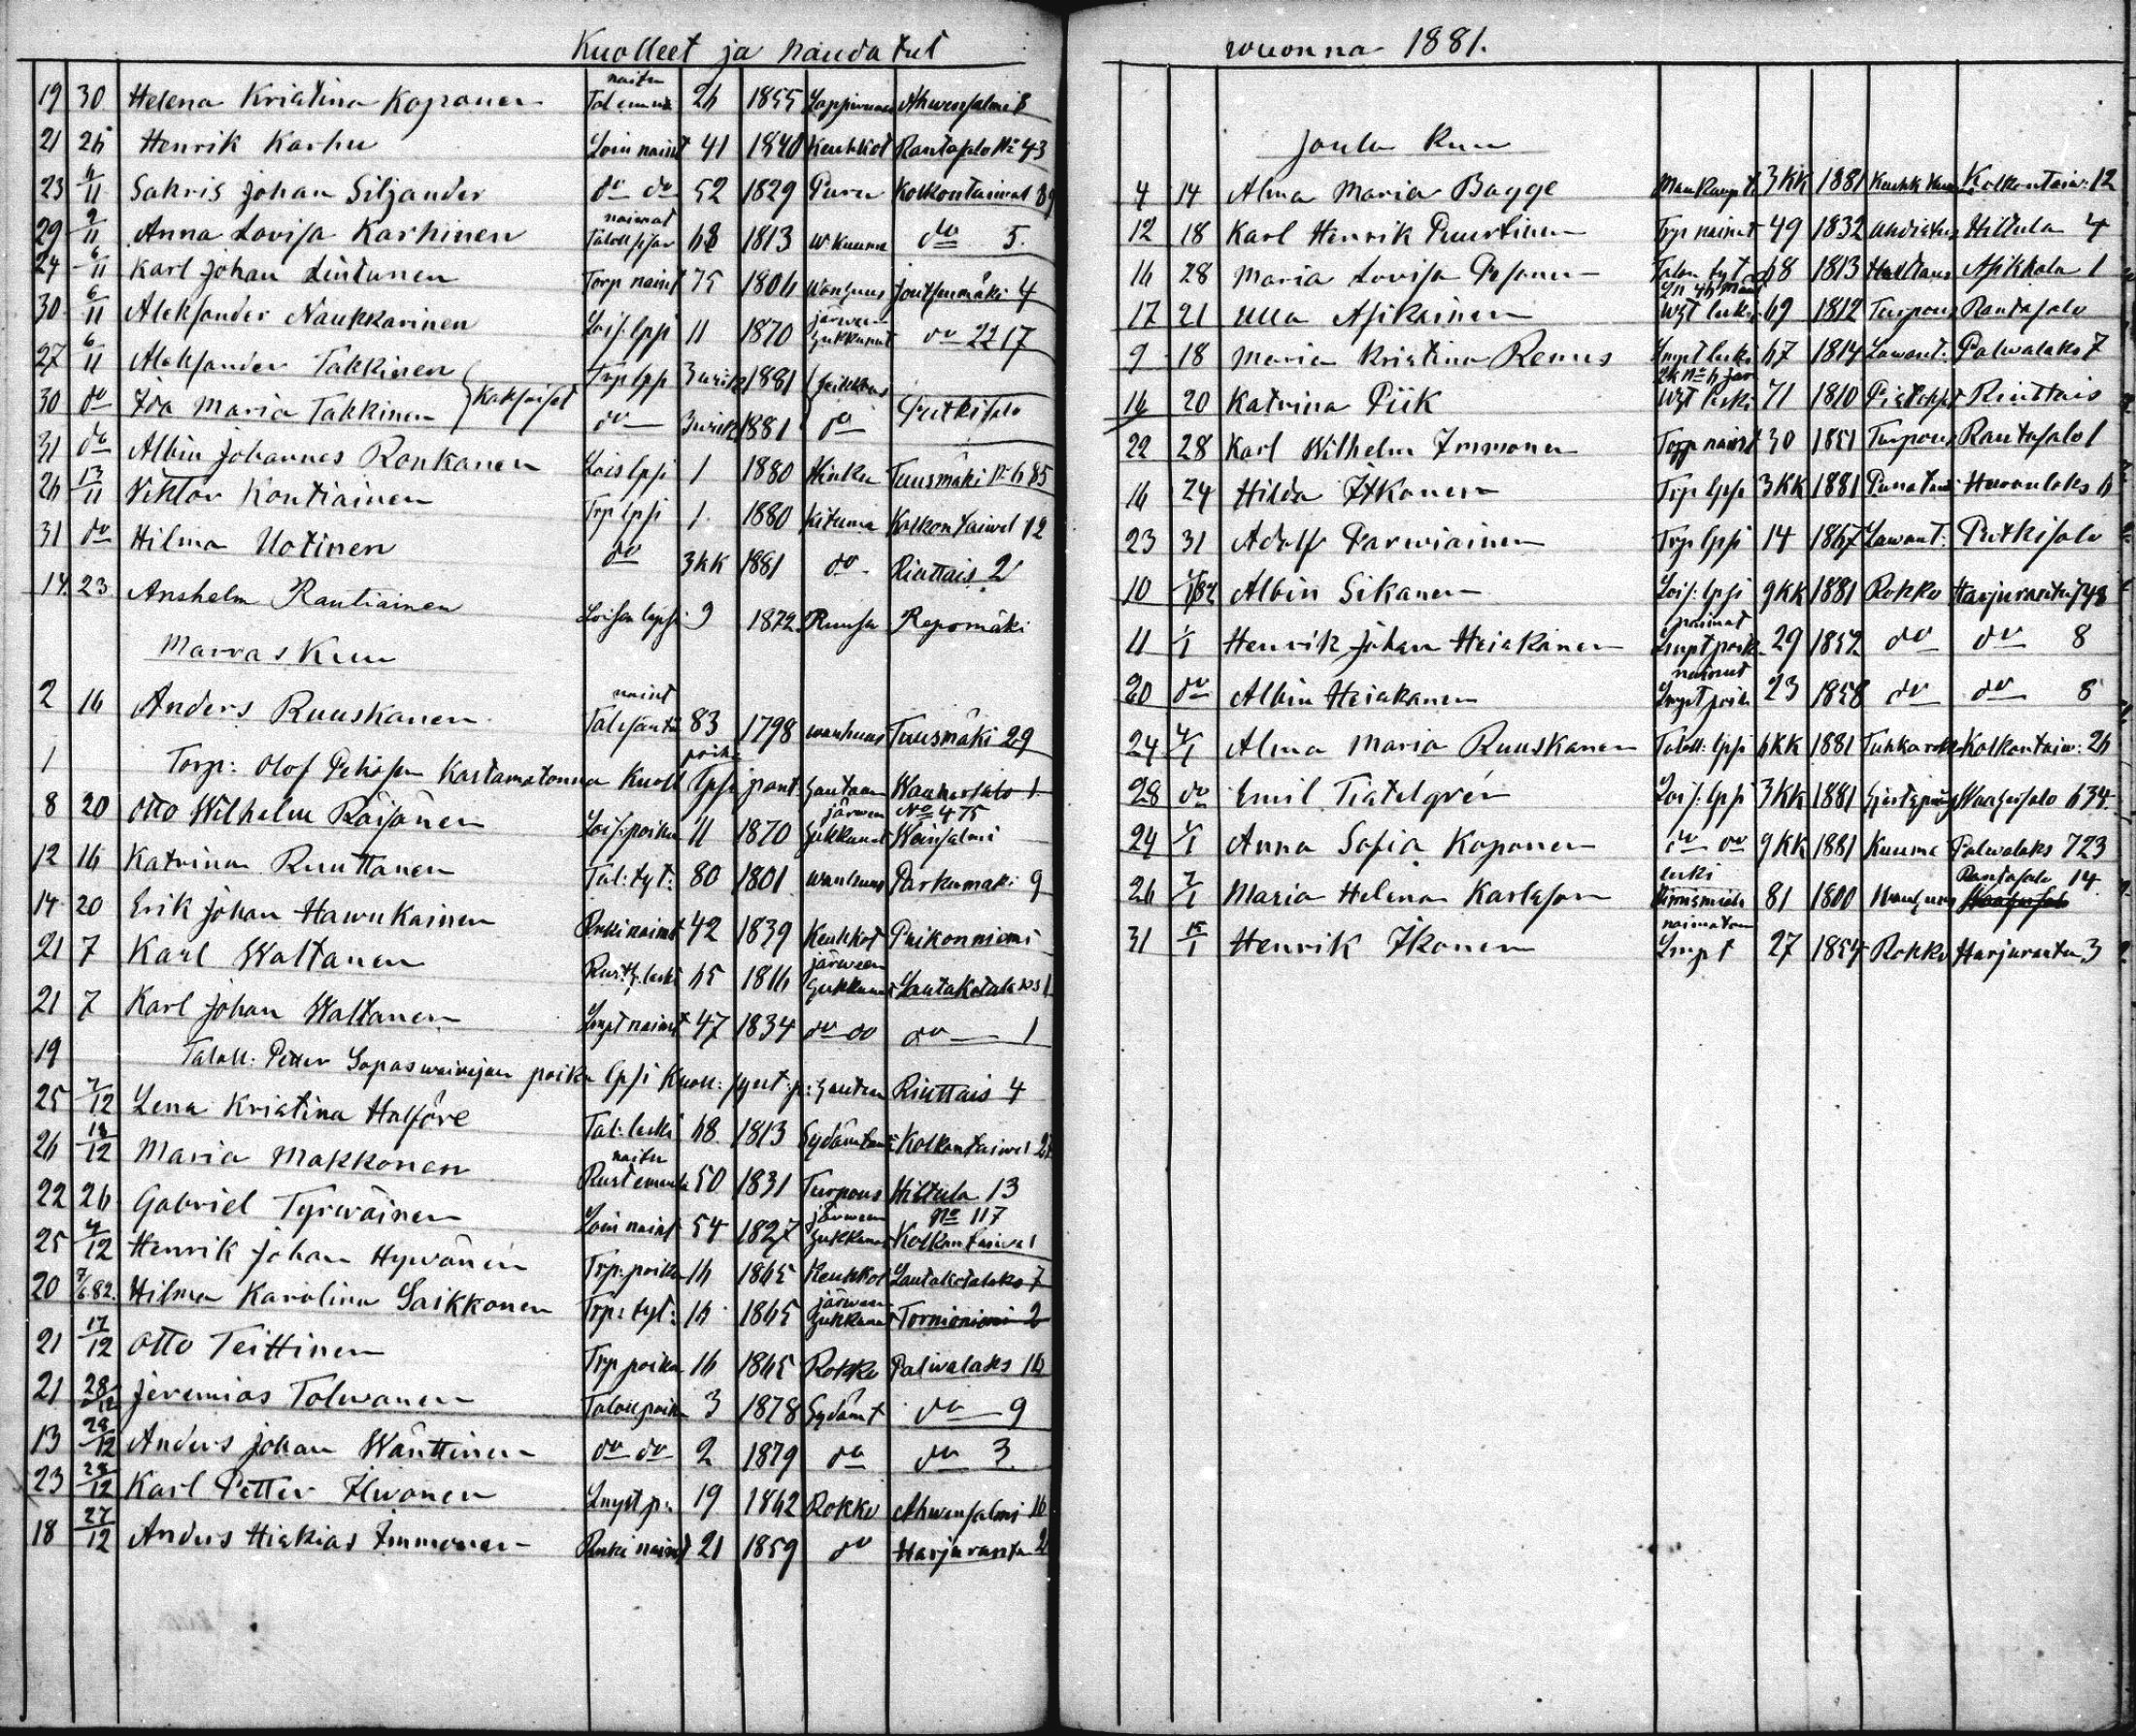 Kuolleet ja haudatut
19 30 Helena Kristina Koponen naitu Tal emnä 26 1855 Lappivuas Ahvensalmi 8
21 25 Henrik Karhu Loin naint 41 1840 Keuhkot Rantasalo No 43
23 6/11 Sakris Johan Siljander do do 52 1829 Puru Kolkontaiwal 39
29 2/11 Anna Lovisa Karhinen naimat 68 1813 w Kuume do 5.
24 6/11 Karl Johan Lintunen Torp naint 75 1806 Wanhuus Joutsenmäki 4
30 6/11 Aleksander Naukkarinen Lois: lpsi 11 1870 järween hukkunut do 2217
27 6/11 Aleksander Takkinen Trp lpsi 3 wiik 1881 heikkous
30 do Ida Maria Takkinen Kaksoiset do 3 wiik 1881 do Putkisalo
31 do Albin Johannes Ronkanen Lois lpsi 1 1880 Hinku Tuusmäki No 685
26 13/11 Viktor Kontiainen Trp lpsi 1 1880 Kituma Kolkontaiwal 12
31 do Hilma Uotinen do 3 kk 1881 do Riuttais 2
14. 23 Anshelm Rautiainen Loisen lapsi 9 1872 Ruusu Repomäki
Marras Kuu
2 16 Anders Ruuskanen naint Tal isäntä 83 1798 wanhuus Tuusmäki 29
1 Torp: Olof Pekosen Kastamatonna Kuoll poika lpsi hautaan Wankersalo 1
8 20 Otto Wilhelm Räisänen Lois: poika 11 1870 järween hukkunut No 475 Wäisalmi
12 16 Katrina Ruuttanen Tal: tyt: 80 1801 wanhuus Parkumäki 9
14 20 Erik Johan Hawukainen Renki naint 42 1839 Keuhkot Pirkonniemi
21 7 Karl Waltanen Rusth. leski 65 1816 järween hukkunut Lautakotalaks 1
21 7 Karl Johan Waltanen Lmpt naint 47 1834 do do do 1
19 Taloll: Petter Sopaswairjan poika lpsi Kuoll: Riuttais 4
25 4/12 Lena Kristina Halföre Tal: leski 68 1813 Sydämtau: Kolkontaiwal 21
26 18/12 Maria Makkonen naitu Rust emäntä 50 1831 Turpous Hiltula 13
22 26 Gabriel Tyrwäinen Loin naint 54 1827 järween hukkunut No 117 Kolkontaiwal
25 4/12 Henrik Johan Hyvönen Trp: poika 16 1865 Keuhkot Lautakotalaks 7
20 7/6.82. Hilma Karolina Saikkonen Trp: tyt: 16 1865 järween hukkunut Tornioniemi 2
21 17/12 Otto Teittinen Trp poika 16 1865 Rokko Palwalaks 16
21 28/12 Jeremias Tolwanen Taloll poika 3 1878 Sydämt do 9
13 28/12 Anders Johan Wänttinen do do 2 1879 do do 3
23 28/12 Karl Petter Ihvonen Lmpt p: 19 1862 Rokko Ahwensalmi 16
18 27/12 Anders Hiskias Immonen Renki naint 21 1859 do Harjuranta 2
wuonna 1881.
Joulu Kuu
4 14 Alma Maria Bagge 3 KK 1881 Kolkontaiw: 12
12 18 Karl Henrik Puurtinen Trp naint 49 1832 Ahdistus Hiltula 4
16 28 Maria Lovisa Pesonen Talon tyt 68 1813 Asikkala 1
17 21 Ulla Asikainen leski 69 1812 Turpous Rantasalo
9 18 Maria Kristina Remes Lmpt leski 67 1814 Lawant: Palwalaks 7
16 20 Katrina Piik leski 71 1810 Riuttais
22 28 Karl Wilhelm Immonen Torp naint 30 1851 Turpous Rantasalo 1
16 24 Hilda Itkonen Trp lpsi 3 KK 1881 Punatau: Haroulaks 6
23 31 Adolf Parwiainen Trp lpsi 14 1867 Lawant: Putkisalo
10 1/82 Albin Sikanen Lois: lpsi 9 KK 1881 Rokko Harjuranta 748
11 1/1 Henrik Johan Heiskanen naimat Lmpt poik 29 1852 do do 8
20 do Albin Heiskanen naimat Lmpt poik 23 1858 do do 8
24 4/1 Alma Maria Ruuskanen Taloll: lpsi 6 KK 1881 Tuhkarokko Kolkontaiw: 26
28 do Emil Tistelgrén Lois: lpsi 3 KK 1881 Wanhersalo 634
24 4/1 Anna Sofia Koponen do do 9 KK 1881 Kuume Palwalaks 723
26 7/1 Maria Helena Karlsson leski 81 1800 Wanhuus Rantasalo 14
31 15/1 Henrik Ikonen naimaton Lmpt 27 1854 Rokko Harjuranta 3